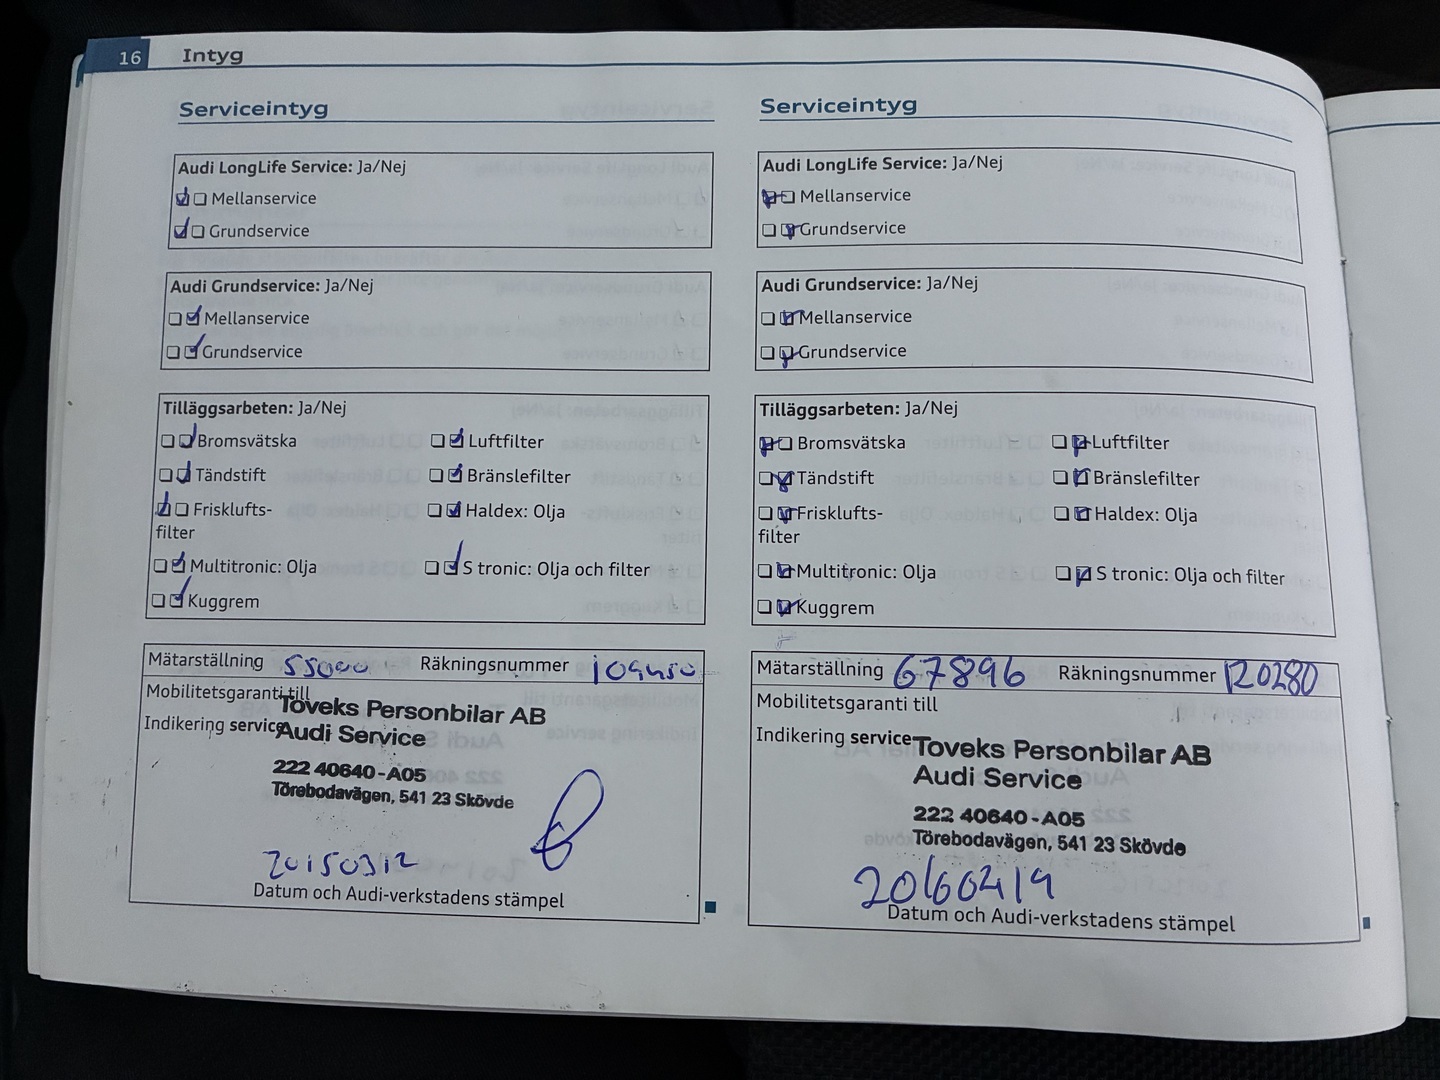 16 Intyg
Serviceintyg
Audi LongLife Service: Ja/Nej
Mellanservice
Grundservice
Audi Grundservice: Ja/Nej
Mellanservice
Grundservice
Tilläggsarbeten: Ja/Nej
Bromsvätska Luftfilter
Tändstift Bränslefilter
Frisklufts- Haldex: Olja
filter
Multitronic: Olja S tronic: Olja och filter
Kuggrem
Mätarställning 55000 Räkningsnummer
Mobilitetsgaranti till
Toveks Personbilar AB
Indikering service
Audi Service
222 40640-A05
Törebodavägen, 541 23 Skövde
20150312
Datum och Audi-verkstadens stämpel
Serviceintyg
Audi LongLife Service: Ja/Nej
Mellanservice
Grundservice
Audi Grundservice: Ja/Nej
Mellanservice
Grundservice
Tilläggsarbeten: Ja/Nej
Bromsvätska Luftfilter
Tändstift Bränslefilter
Frisklufts- Haldex: Olja
filter
Multitronic: Olja S tronic: Olja och filter
Kuggrem
Mätarställning 67896 Räkningsnummer 120280
Mobilitetsgaranti till
Indikering service
Toveks Personbilar AB
Audi Service
222 40640-A05
Törebodavägen, 541 23 Skövde
20160419
Datum och Audi-verkstadens stämpel